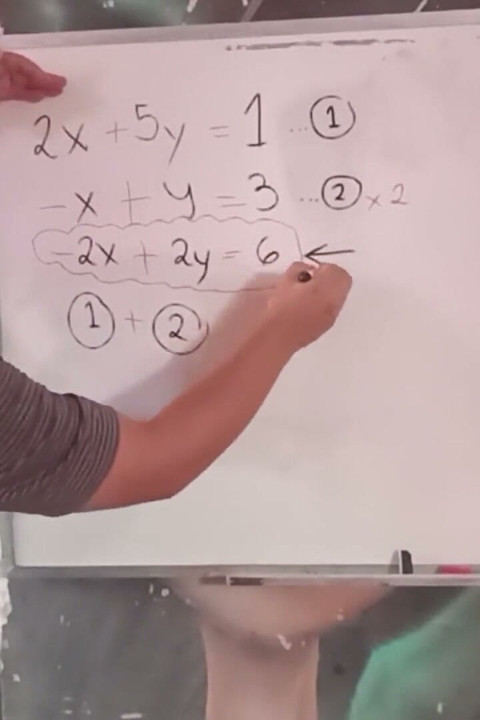 2x + 5y = 1 ... ①
-x + y = 3 ... ② × 2
-2x + 2y = 6 ←
① + ②